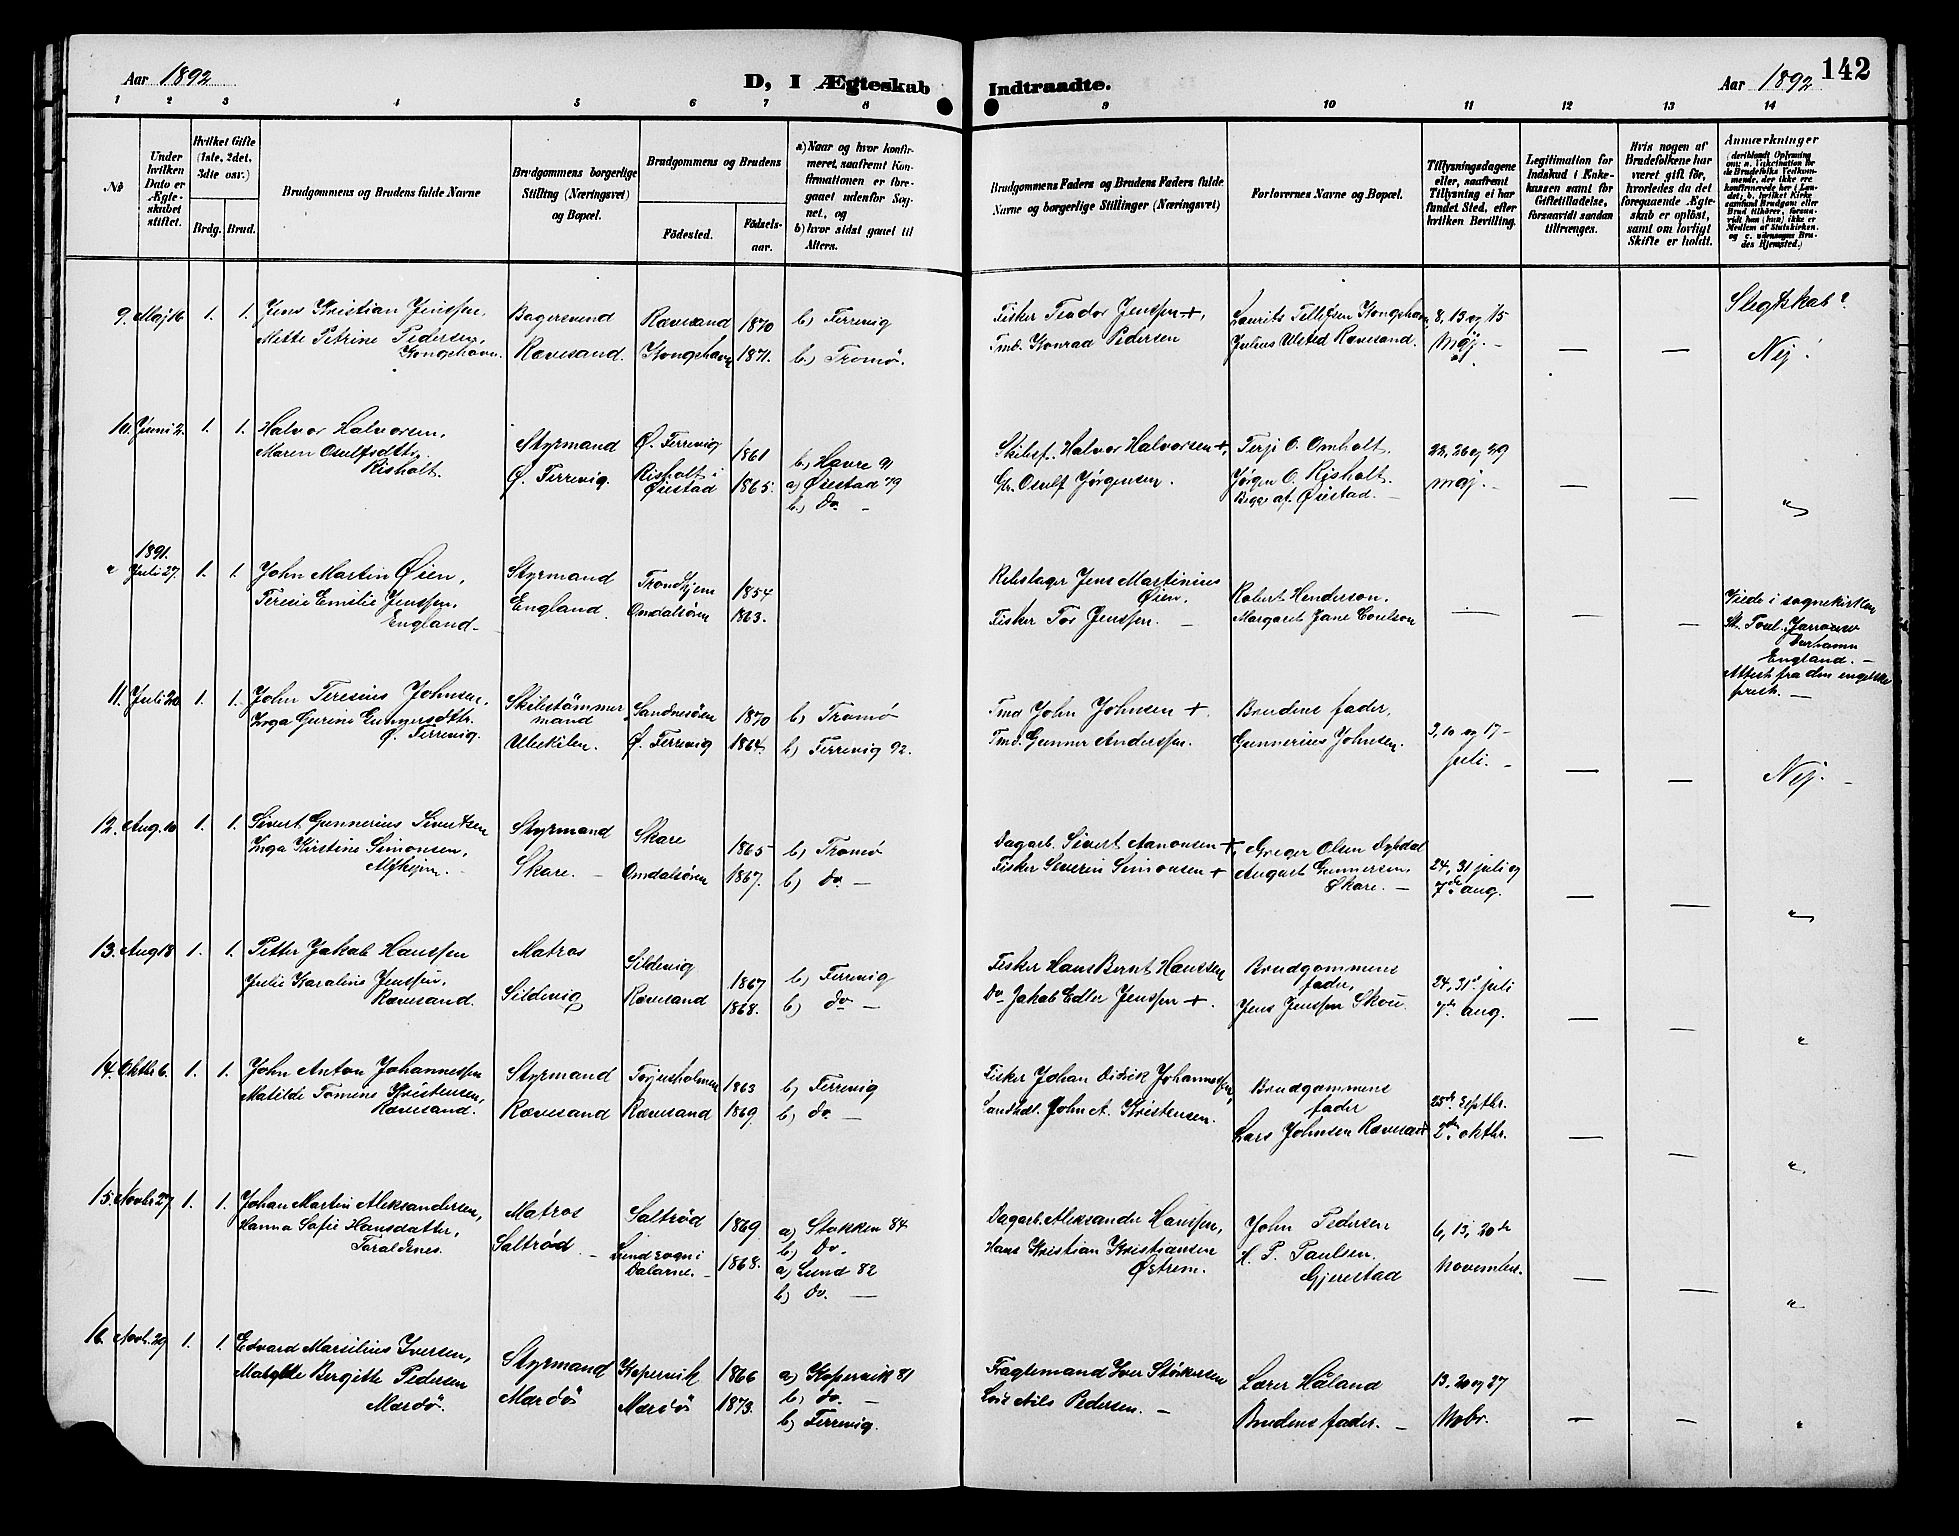 Aar 1892 D, I Ægteskab Indtraadte. Aar 1892 142
1 2 3 4 5 6 7 8 9 10 11 12 13 14
No
Under hvilken Dato er Ægteskabet stiftet.
Hvilket Gifte (1ste, 2det, 3die osv.)
Brdg. Brud.
Brudgommens og Brudens fulde Navne
Brudgommens borgerlige Stilling (Næringsvei) og Bopæl.
Brudgommens og Brudens
Fødested. Fødselsaar.
a) Naar og hvor konfirmeret, saafremt Konfirmationen er foregaaet udenfor Sognet, og
b) hvor sidst gaaet til Alters.
Brudgommens Faders og Brudens Faders fulde Navne og borgerlige Stillinger (Næringsvei)
Forlovernes Navne og Bopæl.
Tillysningsdagene eller, saafremt Tillysning ei har fundet Sted, efter hvilken Bevilling.
Legitimation for Indskud i Enkekassen samt for Giftetilladelse, forsaavidt saadan tiltrænges.
Hvis nogen af Brudefolkene har været gift før, hvorledes da det foregaaende Ægteskab er opløst, samt om lovligt Skifte er holdt.
Anmærkninger
9. Maj 16 1. 1. Jens Kristian Jenssen, Bagersvend Ravesand 1870 b) Færrevig Fisker Teodor Jenssen +, Laurits Tellefsen Kongshavn, 8, 13 og 15 Slegtskab?
Mette Petrine Pedersen, Kongshavn. Ravesand. Kongshavn 1871. b) Tromø. Tmd. Konrad Pedersen Julius Ulsted Ravesand. Maj. — — Nej!
10. Juni 2. 1. 1. Halvor Halvorsen, Styrmand Ø. Færrevig 1861 b) Havre 91 Skibsf. Halvor Halvorsen +, Terje O. Omholt. 22, 26 og 29
Maren Osulfsdttr. Risholt. Ø. Færrevig. Risholt i Øiestad 1865. a) Øiestad 79 b) Do — Gr. Osulf Jørgensen. Jørgen O. Risholt. Begge af Øiestad. — Maj. — — "
1891. Juli 27. 1. 1. John Martin Øien, Styrmand Trondhjem 1854 Rebslager Jens Martinius Øien. Robert Henderson.
Teresie Emilie Jenssen, England — England. Omdalsøren 1863. Fisker Tor Jenssen. — Margaret Jane Coulson — — — Viede i sognekirken St. Paul, Jarrow Durham England. — Attest fra den engelske prest. —
11. Juli 20 1. 1. John Teresius Johnsen, Skibstømmermand Sandnesøen 1870 b) Tromø Tmd John Johnsen +. Brudens fader, 3, 10 og 17
Inga Gurine Gunnersdttr. Ø. Færrevig. Ubekilen. Ø. Færrevig 1864. b) Færrevig 92. Tmd. Gunner Anderssen. Gunnerius Johnsen. juli. — — Nej. —
12. Aug. 10 1. 1. Sivert Gunnerius Sivertsen Styrmand Skare 1865 b) Tromø Dagarb. Sivert Aanonsen +, Greger Olsen Dybdal 24, 31 juli og
Inga Kirstine Simonsen, Skare. — Omdalsøren 1867. b) do — Fisker Severin Simonsen + August Gunnersen, Skare. — 7de aug. — — "
13. Aug 18 1. 1. Petter Jakob Hanssen Matros Sildevig 1867 b) Færrevig Fisker Hans Bernt Hanssen Brudgommens fader, 24, 31 juli
Julie Karoline Jenssen, Ravesand. Sildevig Ravesand 1868. b) do — Do Jakob Edler Jenssen +. Jens Jenssen Skou. 7de aug. — — "
14. Oktbr 6. 1. 1. John Anton Johannessen Styrmand Torjusholmen 1863 b) Færrevig Fisker Johan Didrik Johannessen, Brudgommens fader 25de Septbr.
Matilde Tomine Kristensen, Ravesand. Ravesand Ravesand 1869. b) do — Landhdl. John A. Kristensen. Lars Johnsen Ravesand 2den oktbr. — — "
15. Novbr 27. 1. 1. Johan Martin Aleksandersen, Matros Saltrød 1869 a) Stokken 84 b) Do. Dagarb. Aleksander Hanssen, John Pedersen 6, 13, 20de
Hanna Sofie Hansdatter, Taraldsnes. Saltrød. — Lund sogn i Dalarne. — 1868. a) Lund 82 b) Do. — Hans Kristian Kristiansen Østrem. H. P. Paulsen. Gjerestad November. — — "
16. Novb. 29 1. 1. Edvard Marsilius Iversen, Styrmand Kopervik 1866 a) Kopervik 81 b) do. — Fragtemand Iver Størkersen Lærer Håland 13, 20 og 27
Matylde Bergitte Pedersen Mærdø. Mærdø Mærdø 1873. b) Færrevig. Lods Nils Pedersen. — Brudens fader. — Nobr. — — "